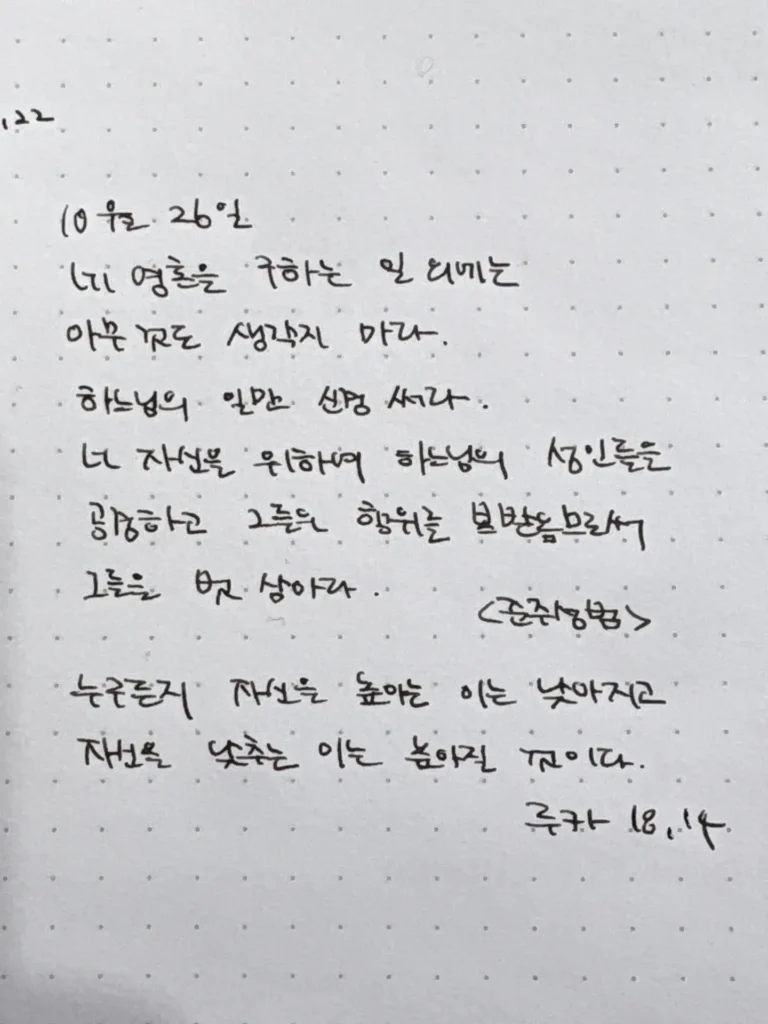 ,22
10월 26일
네 영혼을 구하는 일 외에는
아무것도 생각지 마라.
하느님의 일만 신경 써라.
너 자신을 위하여 하느님의 성인들을
공경하고 그들의 행위를 본받음으로써
그들을 벗 삼아라.
<준주성범>
누구든지 자신을 높이는 이는 낮아지고
자신을 낮추는 이는 높아질 것이다.
루카 18,14